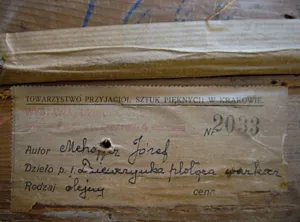 TOWARZYSTWO PRZYJACIÓŁ SZTUK PIĘKNYCH W KRAKOWIE.
Nr 2033
Autor Mehoffer Józef
Dzieło p. t. Dziewczynka plotąca warkocz
Rodzaj olejny cena